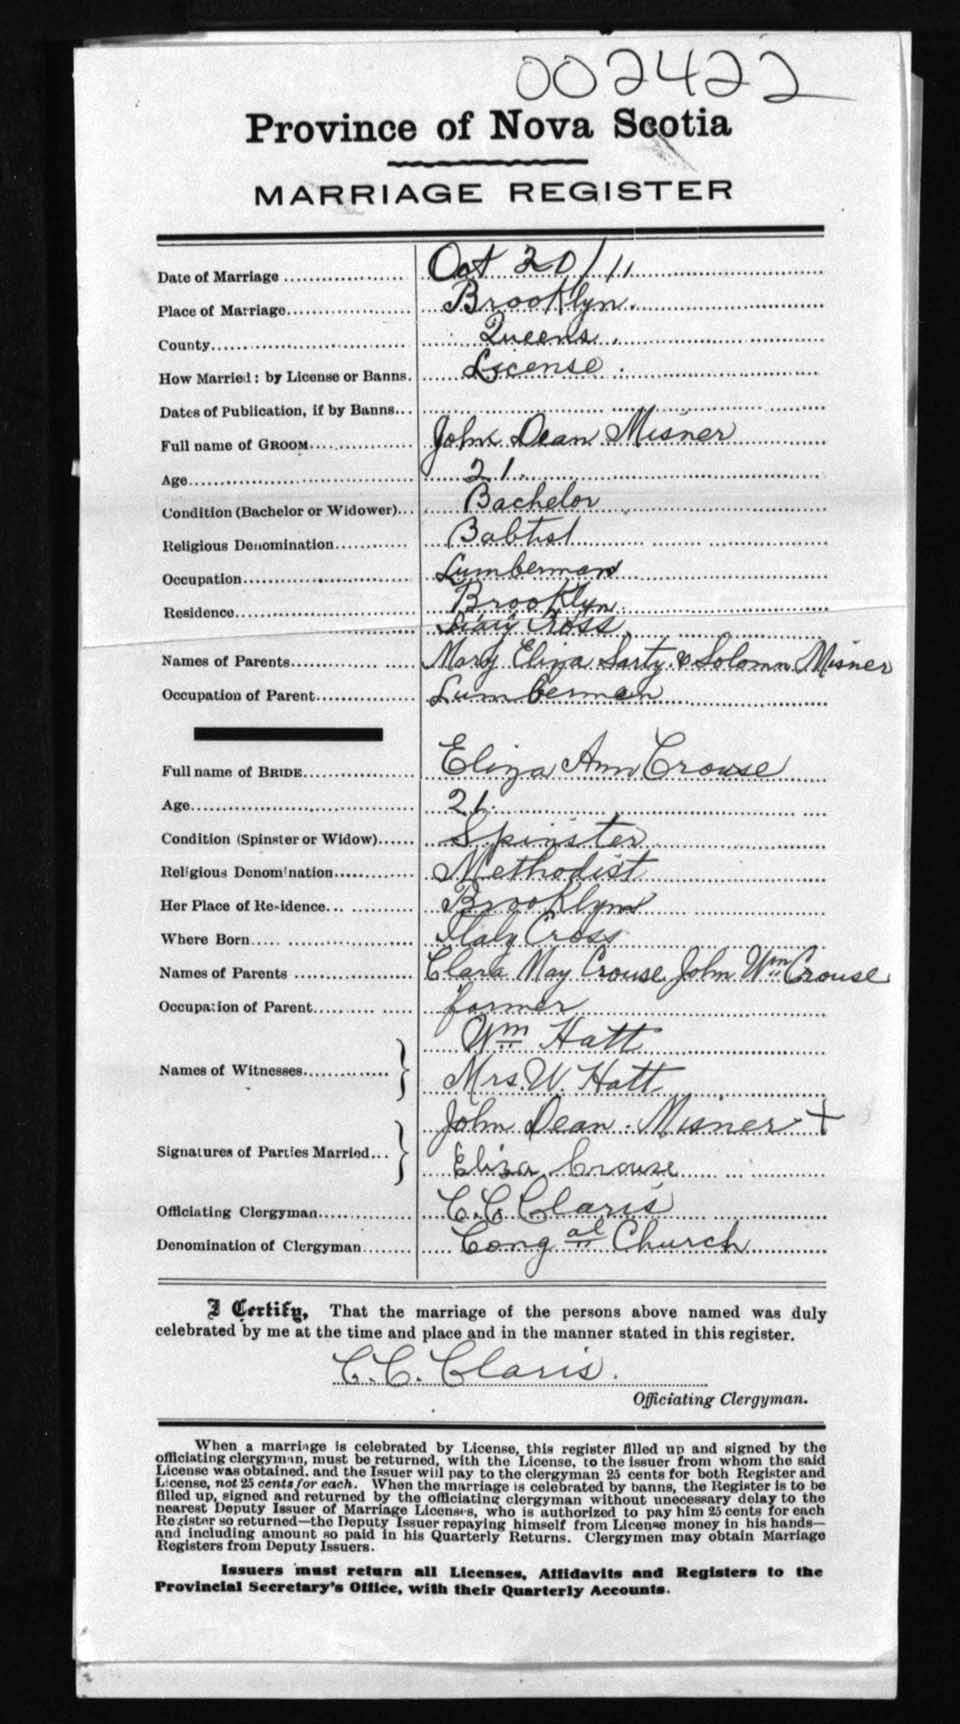 002422
Province of Nova Scotia
MARRIAGE REGISTER
Date of Marriage Oct 20/11
Place of Marriage Brooklyn.
County Queens.
How Married: by License or Banns. License.
Dates of Publication, if by Banns
Full name of GROOM John Dean Misner
Age 21.
Condition (Bachelor or Widower) Bachelor
Religious Denomination Babtist
Occupation Lumberman
Residence Brooklyn.
Cross
Names of Parents Mary Eliza Sarty & Solomn Misner
Occupation of Parent Lumberman
Full name of BRIDE Eliza Ann Crouse
Age 21.
Condition (Spinster or Widow) Spinster
Religious Denomination Methodist
Her Place of Residence Brooklyn
Where Born Italy Cross
Names of Parents Clara May Crouse John Wm Crouse
Occupation of Parent farmer
Names of Witnesses Wm Hatt
Mrs. W. Hatt
Signatures of Parties Married John Dean Misner +
Eliza Crouse
Officiating Clergyman C. C. Claris
Denomination of Clergyman Congal Church
I Certify, That the marriage of the persons above named was duly
celebrated by me at the time and place and in the manner stated in this register.
C. C. Claris.
Officiating Clergyman.
When a marriage is celebrated by License, this register filled up and signed by the
officiating clergyman, must be returned, with the License, to the issuer from whom the said
License was obtained, and the Issuer will pay to the clergyman 25 cents for both Register and
License, not 25 cents for each. When the marriage is celebrated by banns, the Register is to be
filled up, signed and returned by the officiating clergyman without unnecessary delay to the
nearest Deputy Issuer of Marriage Licenses, who is authorized to pay him 25 cents for each
Register so returned—the Deputy Issuer repaying himself from License money in his hands—
and including amount so paid in his Quarterly Returns. Clergymen may obtain Marriage
Registers from Deputy Issuers.
Issuers must return all Licenses, Affidavits and Registers to the
Provincial Secretary's Office, with their Quarterly Accounts.